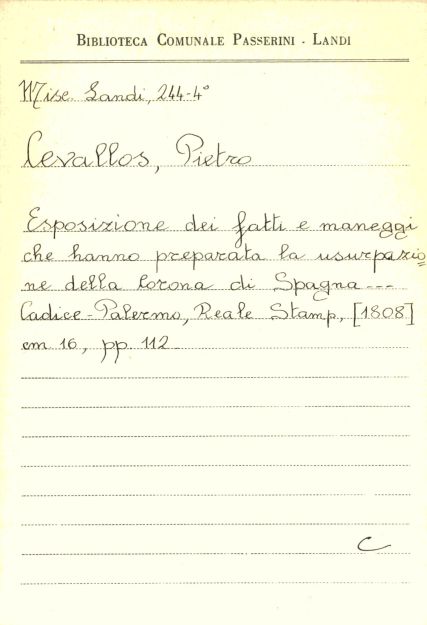 BIBLIOTECA COMUNALE PASSERINI - LANDI
Misc. Landi, 244-4°
Cevallos, Pietro
Esposizione dei fatti e maneggi
che hanno preparata la usurpazio=
ne della Corona di Spagna ---
Cadice-Palermo, Reale Stamp., [1808]
cm 16, pp. 112
C